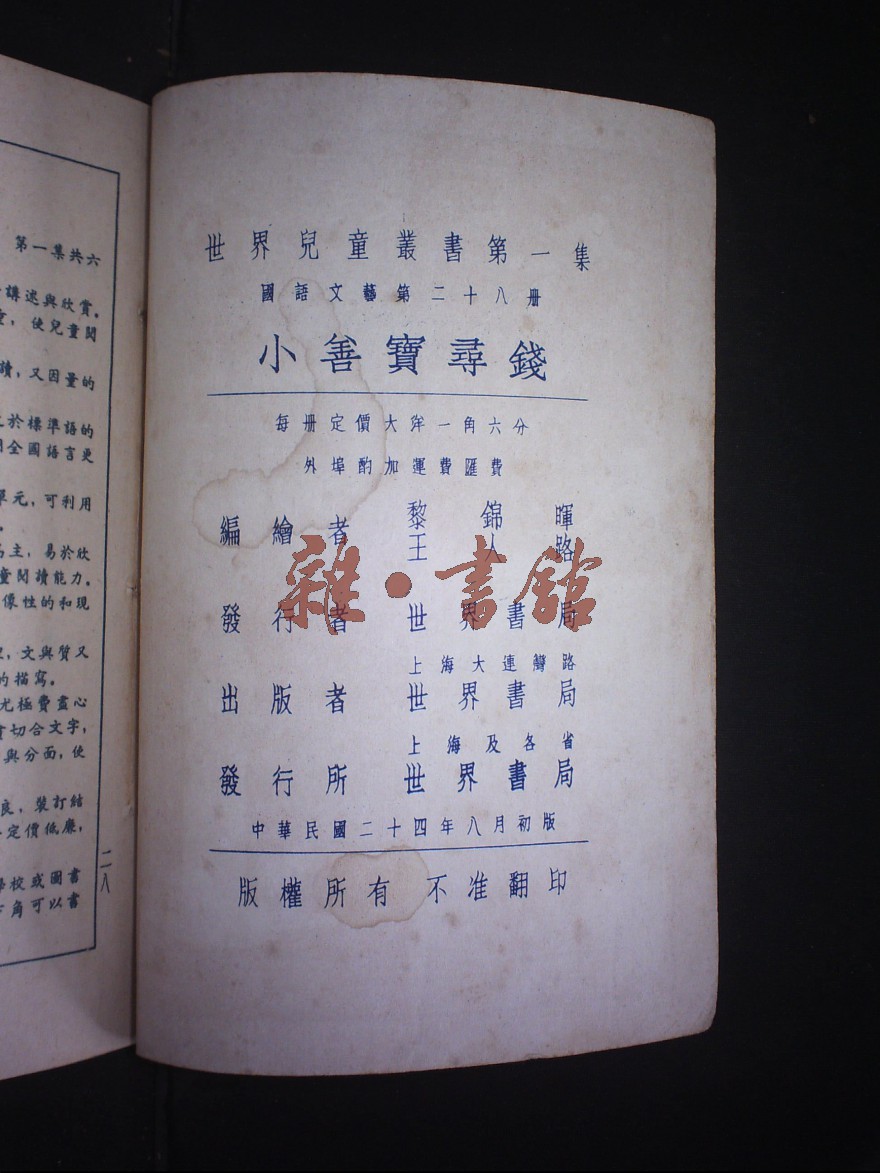 世界兒童叢書第一集
國語文藝第二十八册
小善寶尋錢
每册定價大洋一角六分
外埠酌加運費匯費
編繪者 黎錦暉
王人路
發行者 世界書局
上海大連灣路
出版者 世界書局
上海及各省
發行所 世界書局
中華民國二十四年八月初版
版權所有 不准翻印
雜·書館
第一集共六
講述與欣賞。
使兒童閱
讀,又因量的
於標準語的
全國語言更
單元,可利用
為主,易於欣
童閱讀能力。
像性的和現
文與質又
的描寫。
尤極費盡心
切合文字,
與分面,使
良,裝訂結
定價低廉,
學校或圖書
角可以書
二八